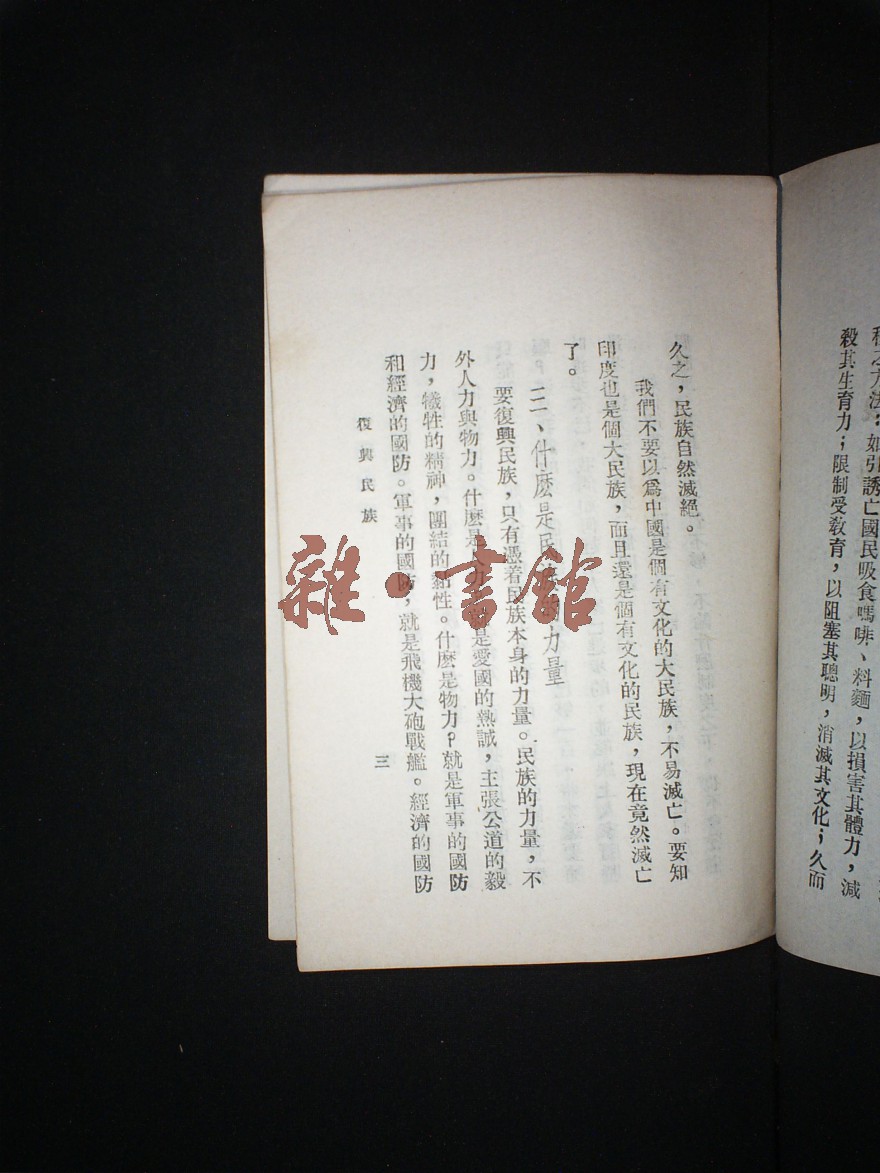 殺其生育力；限制受教育，以阻塞其聰明，消滅其文化；久而
久之，民族自然滅絕。
我們不要以爲中國是個有文化的大民族，不易滅亡。要知
印度也是個大民族，而且還是個有文化的民族，現在竟然滅亡
了。
二、什麽是民族的力量
要復興民族，只有憑着民族本身的力量。民族的力量，不
外人力與物力。什麽是人力？就是愛國的熱誠，主張公道的毅
力，犧牲的精神，團結的黏性。什麽是物力？就是軍事的國防
和經濟的國防。軍事的國防，就是飛機大砲戰艦。經濟的國防
復興民族
三
雜·書館